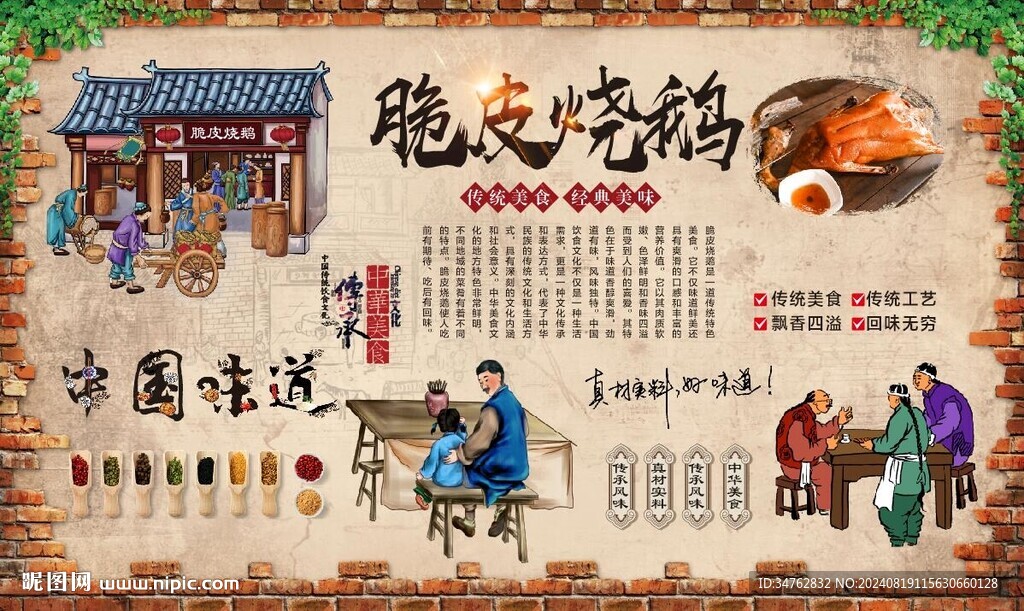 脆皮烧鹅
脆皮烧鹅
传统美食 经典美味
脆皮烧鹅是一道传统特色
美食。它不仅味道鲜美还
具有爽滑的口感和丰富的
营养价值。它以其肉质软
嫩、色泽鲜明和香味四溢
而受到人们的喜爱。其特
色在于味道香醇爽滑，劲
道有味，风味独特。中国
饮食文化不仅是一种生活
需求，更是一种文化传承
和表达方式，代表了中华
民族的传统文化和生活方
式，具有深刻的文化内涵
和社会意义。中华美食文
化的地方特色非常鲜明，
不同地域的菜肴有着不同
的特点。脆皮烧鹅使人吃
前有期待、吃后有回味。
中国传统饮食文化
传承
中華美食
文化
传统美食 传统工艺
飘香四溢 回味无穷
中国味道
真材实料,好味道!
传承风味
真材实料
传承风味
中华美食
昵图网 www.nipic.com
ID:34762832 NO:20240819115630660128